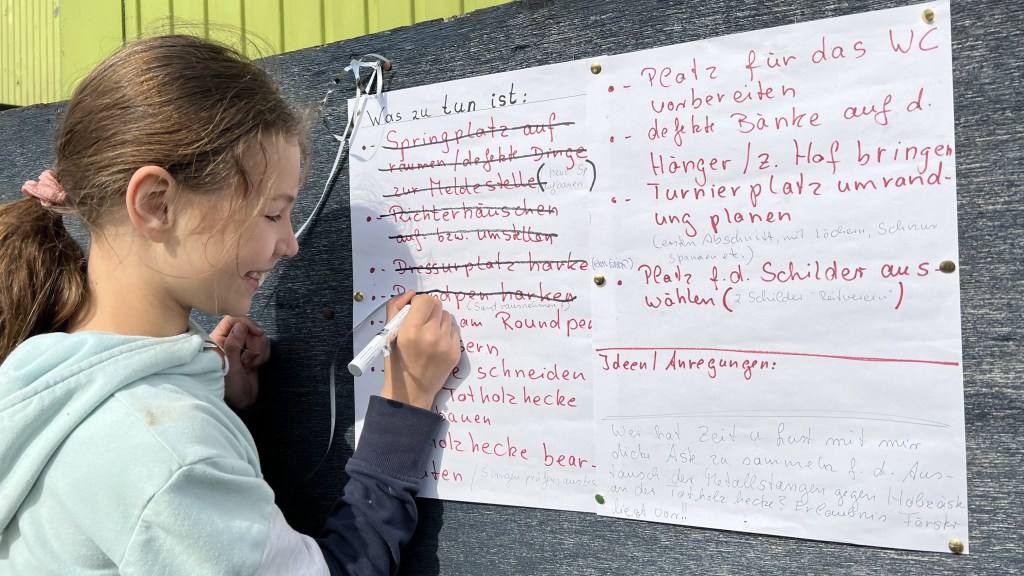 Was zu tun ist:
- Springplatz auf
räumen/defekte Dinge
zur Meldestelle (
- Richterhäuschen
auf bzw. umstellen
- Dressurplatz harke
harken
am Roundpe
ern
e schneiden
Totholzhecke
bauen
holzhecke bear-
ten /
- Platz für das WC
vorbereiten
- defekte Bänke auf d.
Hänger/z. Hof bringen
- Turnierplatz umrand-
ung planen
(ersten Abschnitt, mit Löchern, Schnur
spannen etc.)
Platz f. d. Schilder aus-
wählen (2 Schilder "Reitverein")
Ideen/Anregungen:
Wer hat Zeit u Lust mit mir
dicke Äste zu sammeln f. d. Aus-
tausch der Metallstangen gegen
an der Totholzhecke? Erlaubnis
liegt vor!!